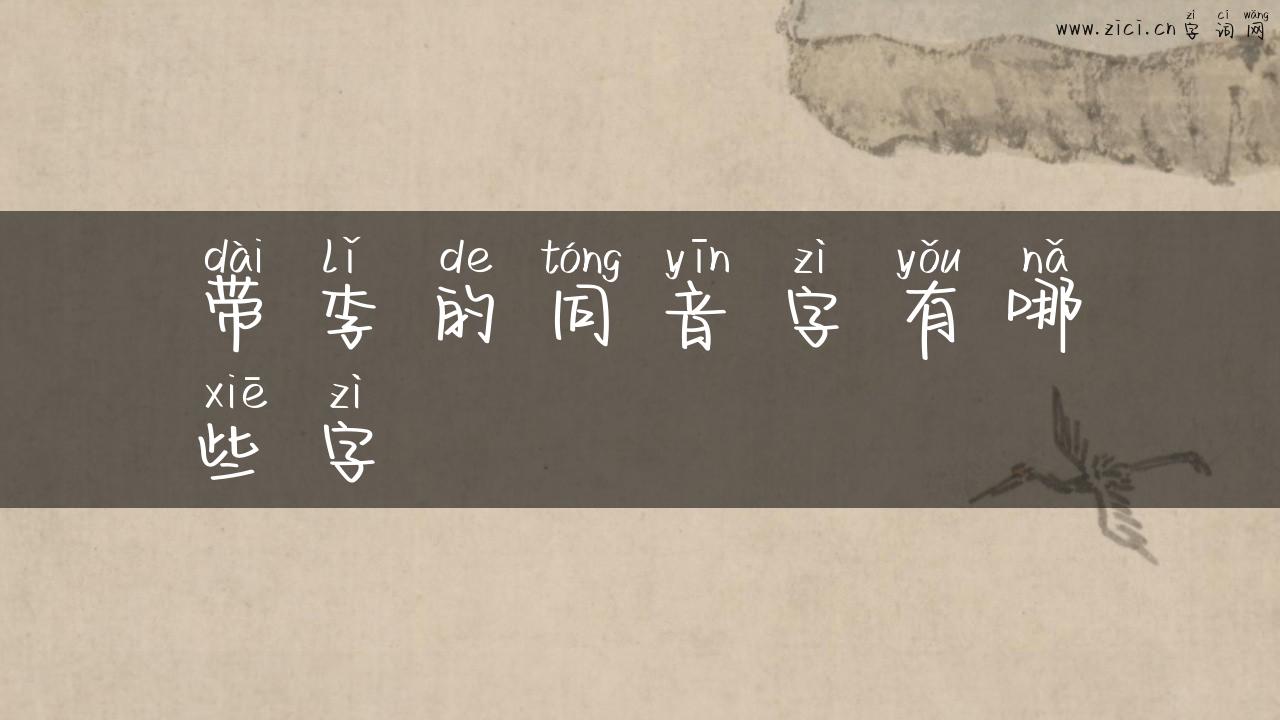 zì cí wǎng
www.zici.cn 字词网
dài lǐ de tóng yīn zì yǒu nǎ
带李的同音字有哪
xiē zì
些字